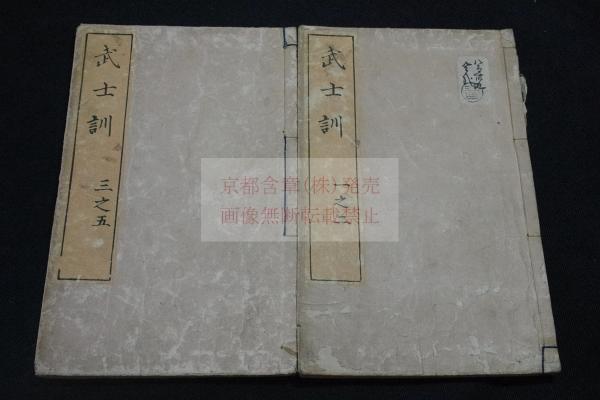 武士訓
一之二
武士訓
三之五
京都含章(株)発売
画像無断転載禁止